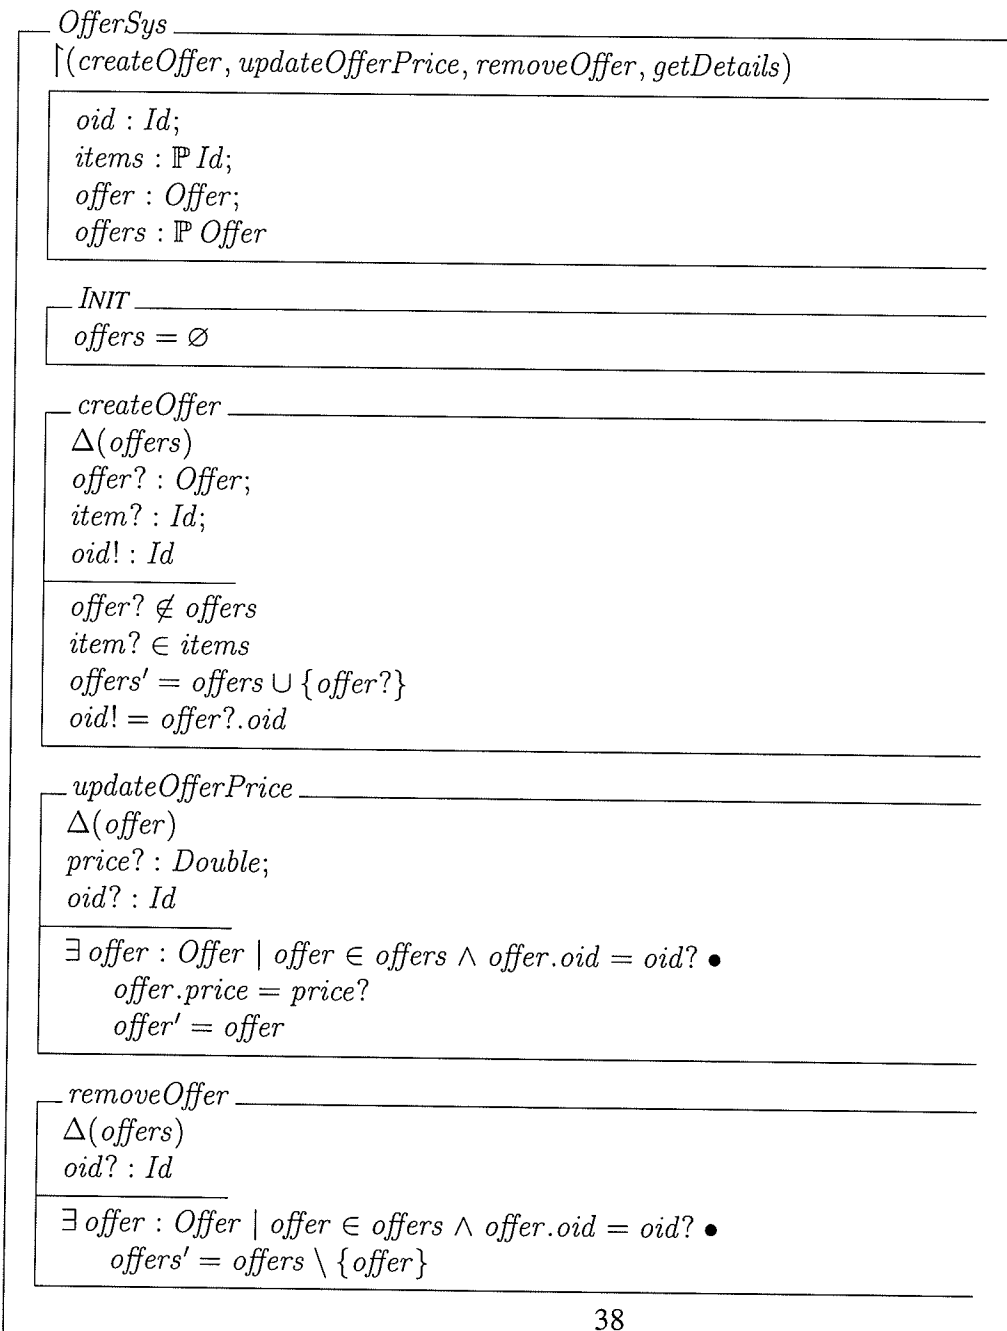 OfferSys
↾(createOffer, updateOfferPrice, removeOffer, getDetails)
oid : Id;
items : ℙ Id;
offer : Offer;
offers : ℙ Offer
INIT
offers = ∅
createOffer
Δ(offers)
offer? : Offer;
item? : Id;
oid! : Id
offer? ∉ offers
item? ∈ items
offers′ = offers ∪ {offer?}
oid! = offer?.oid
updateOfferPrice
Δ(offer)
price? : Double;
oid? : Id
∃ offer : Offer | offer ∈ offers ∧ offer.oid = oid? •
offer.price = price?
offer′ = offer
removeOffer
Δ(offers)
oid? : Id
∃ offer : Offer | offer ∈ offers ∧ offer.oid = oid? •
offers′ = offers \ {offer}
38